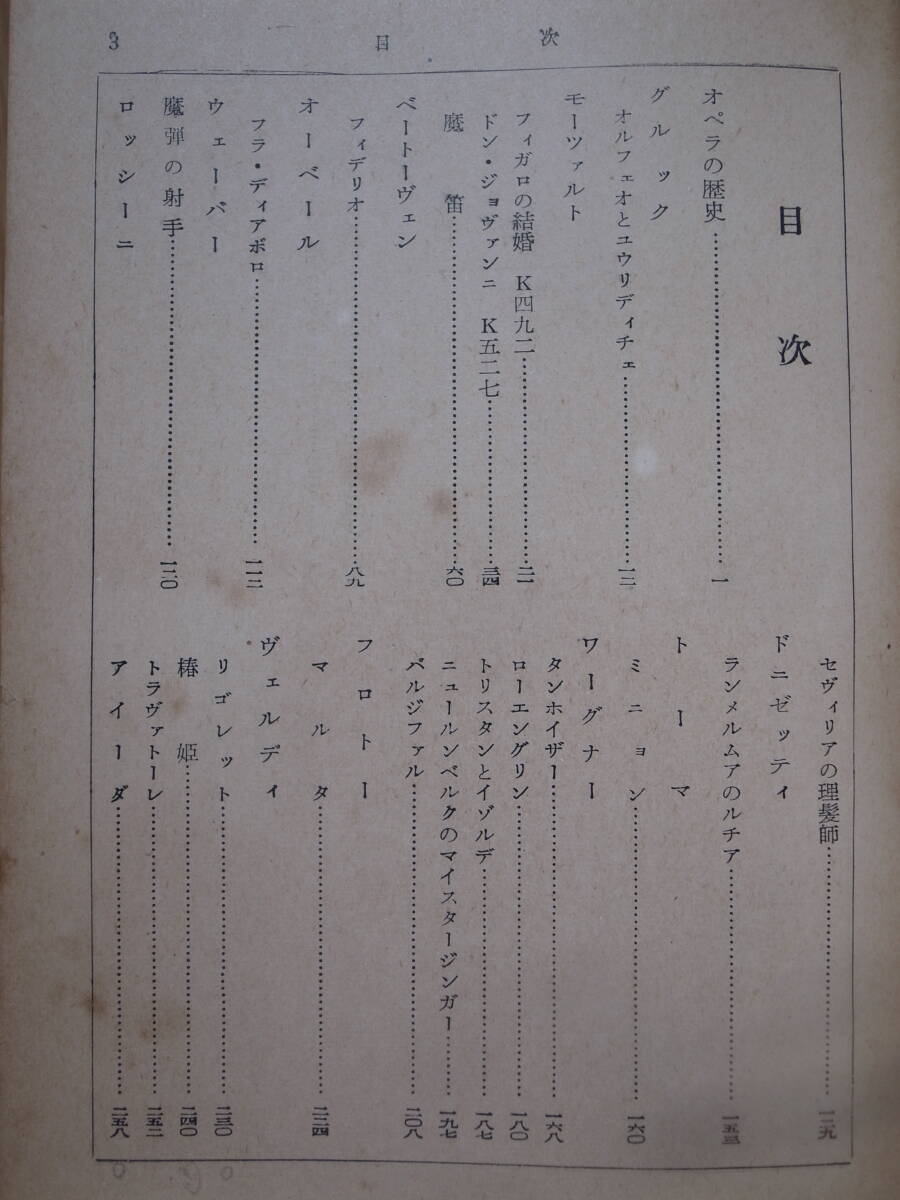 3 目次
目次
オペラの歴史……一
グルック
オルフェオとユウリディチェ……一二
モーツァルト
フィガロの結婚 K四九二……二一
ドン・ジョヴァンニ K五二七……三四
魔笛……六〇
ベートーヴェン
フィデリオ……八九
オーベール
フラ・ディアボロ……一一二
ウェーバー
魔弾の射手……一二〇
ロッシーニ
セヴィリアの理髪師……一二九
ドニゼッティ
ランメルムアのルチア……一五三
トーマ
ミニョン……一六〇
ワーグナー
タンホイザー……一六八
ローエングリン……一八〇
トリスタンとイゾルデ……一八七
ニュールンベルクのマイスタージンガー……一九七
パルジファル……二〇八
フロトー
マルタ……二二四
ヴェルディ
リゴレット……二三〇
椿姫……二四〇
トラヴァトーレ……二五二
アイーダ……二五八